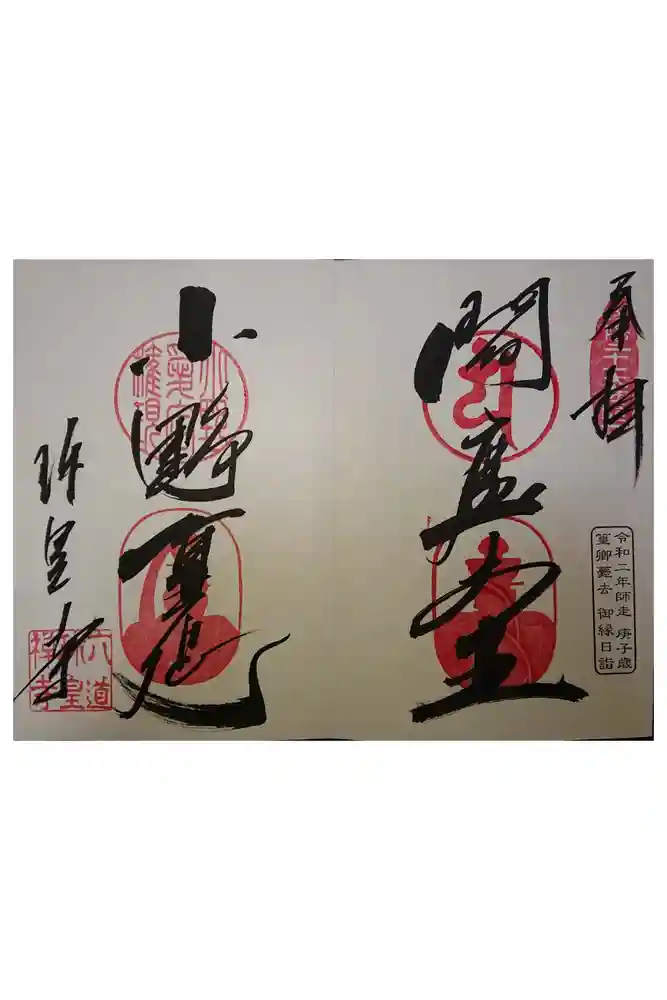 奉拝
令和二年師走 庚子歳
篁卿薨去 御縁日詣
閻魔大王
小野
珍皇寺
六道珍皇寺